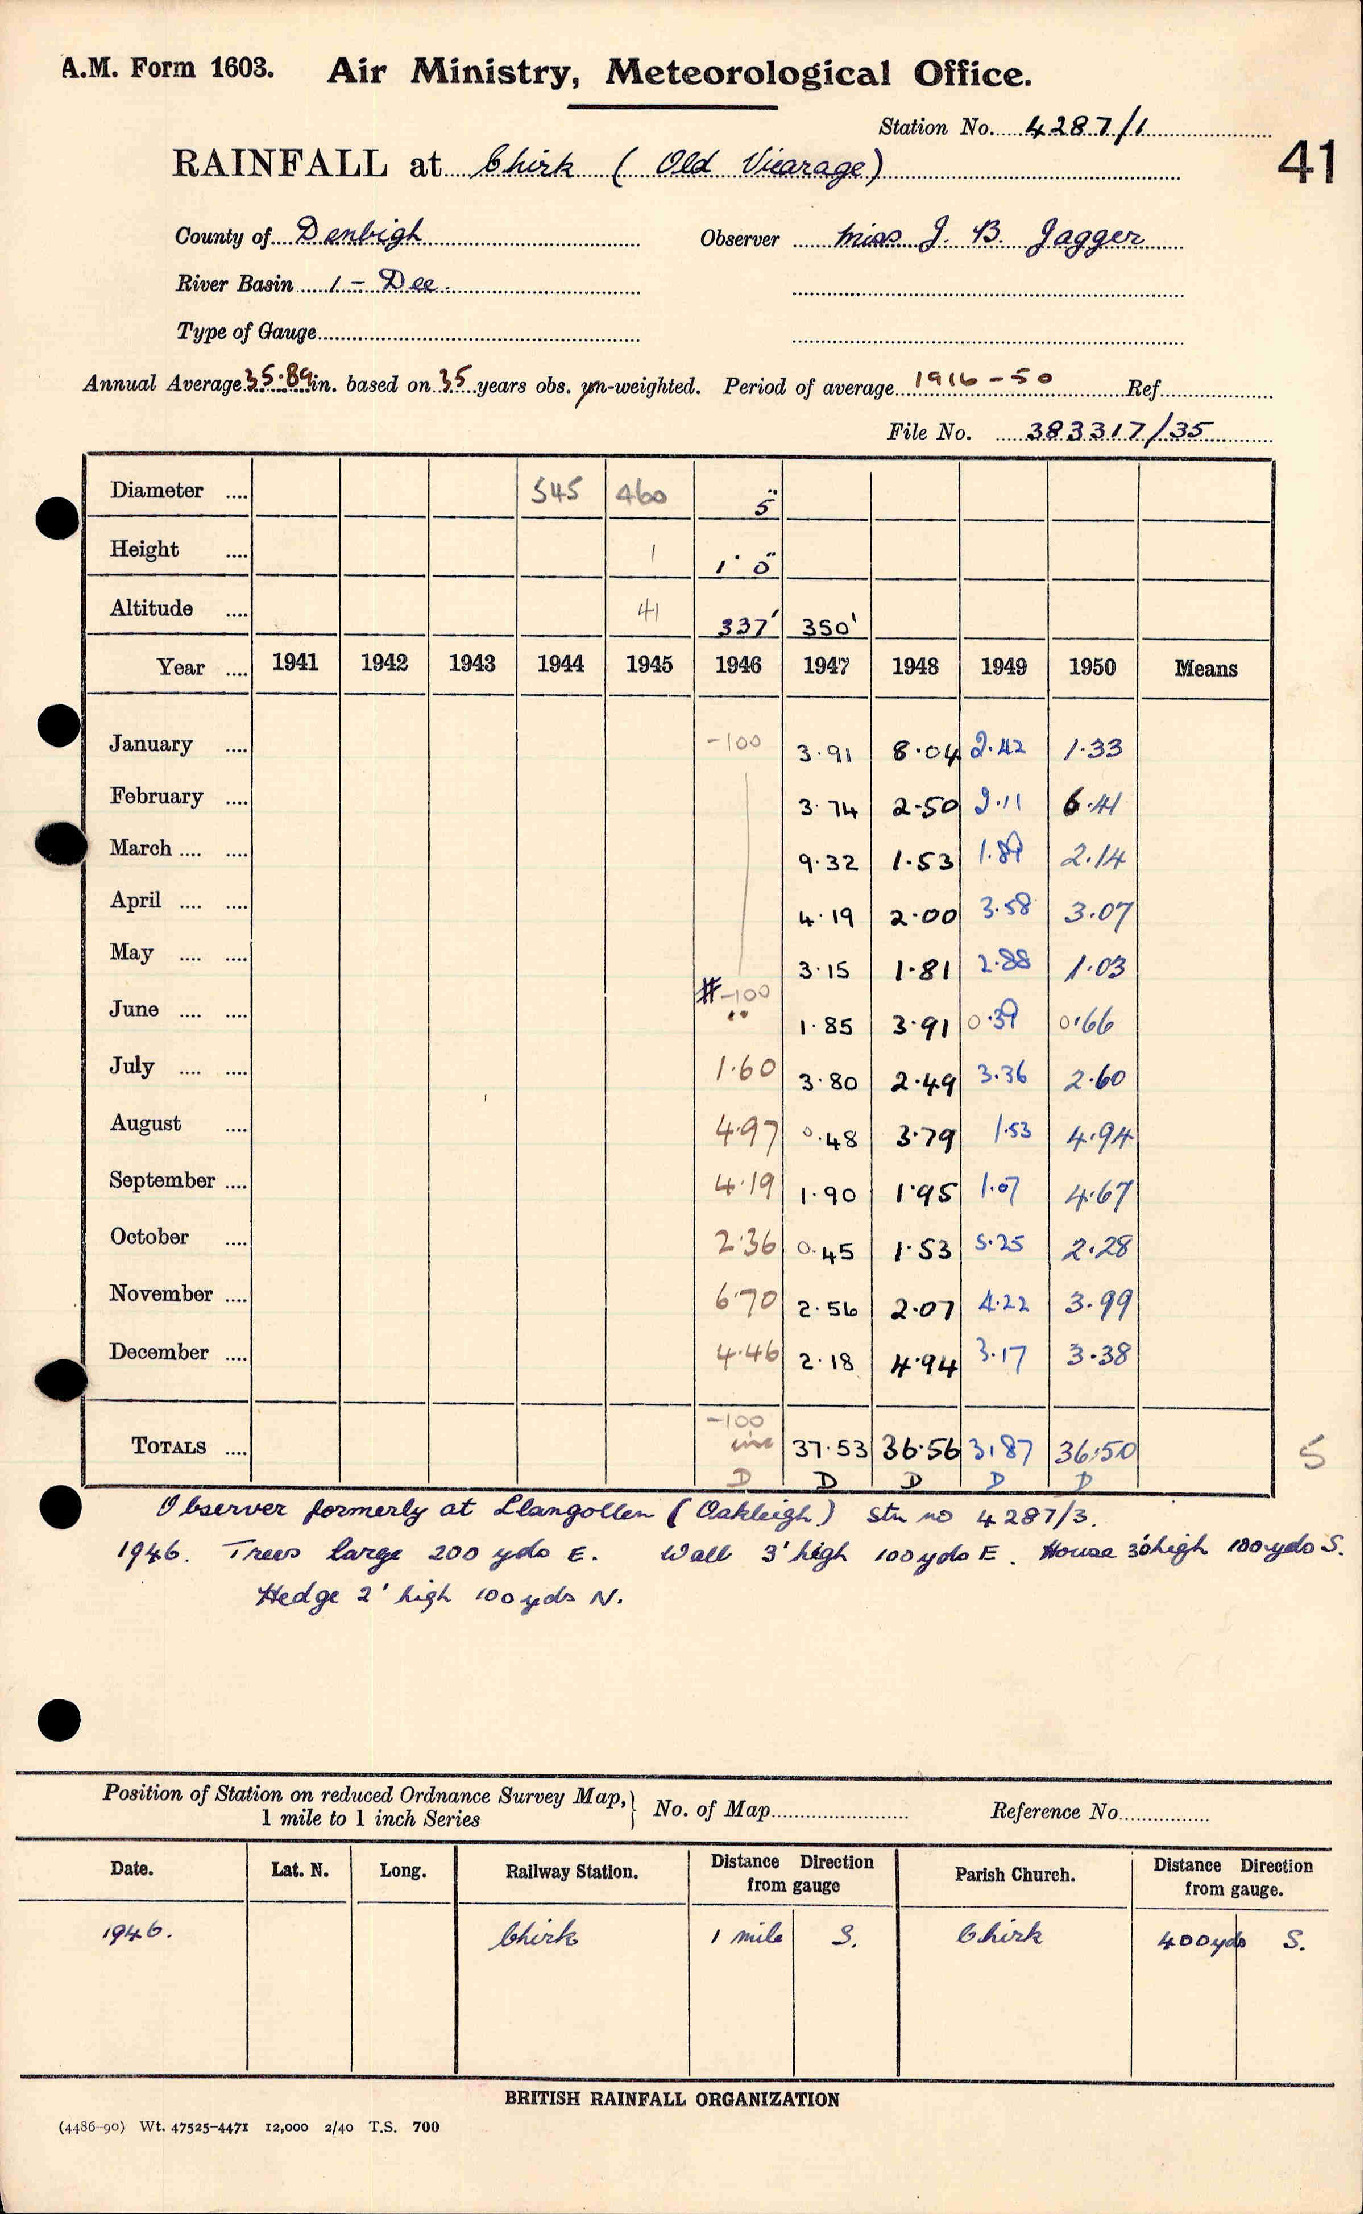 A.M. Form 1603. Air Ministry, Meteorological Office.
Station No. 4287/1
41
RAINFALL at Chirk ( Old Vicarage)
County of Denbigh Observer Miss J. B. Jagger
River Basin 1 - Dee.
Type of Gauge
Annual Average 35.89 in. based on 35 years obs. un-weighted. Period of average 1916-50 Ref.
File No. 383317/35
Diameter .... 545 460 5"
Height .... 1 1' 0"
Altitude .... 41 337' 350'
Year .... 1941 1942 1943 1944 1945 1946 1947 1948 1949 1950 Means
January .... -100 3.91 8.04 2.42 1.33
February .... 3.74 2.50 2.11 6.41
March .... .... 9.32 1.53 1.89 2.14
April .... .... 4.19 2.00 3.58 3.07
May .... .... 3.15 1.81 2.88 1.03
June .... .... # -100 1.85 3.91 0.39 0.66
July .... .... 1.60 3.80 2.49 3.36 2.60
August .... 4.97 0.48 3.79 1.53 4.94
September .... 4.19 1.90 1.95 1.07 4.67
October .... 2.36 0.45 1.53 5.25 2.28
November .... 6.70 2.56 2.07 4.22 3.99
December .... 4.46 2.18 4.94 3.17 3.38
TOTALS .... -100 inc 37.53 36.56 31.87 36.50 5
D D D D D
Observer formerly at Llangollen (Oakleigh) Stn no 4287/3.
1946. Trees large 200 yds E. Wall 3' high 100 yds E. House 30' high 100 yds S.
Hedge 2' high 100 yds N.
Position of Station on reduced Ordnance Survey Map, } No. of Map Reference No.
1 mile to 1 inch Series
Date. Lat. N. Long. Railway Station. Distance Direction from gauge Parish Church. Distance Direction from gauge.
1946. Chirk 1 mile S. Chirk 400 yds S.
BRITISH RAINFALL ORGANIZATION
(4486-90) Wt. 47525-4471 12,000 2/40 T.S. 700